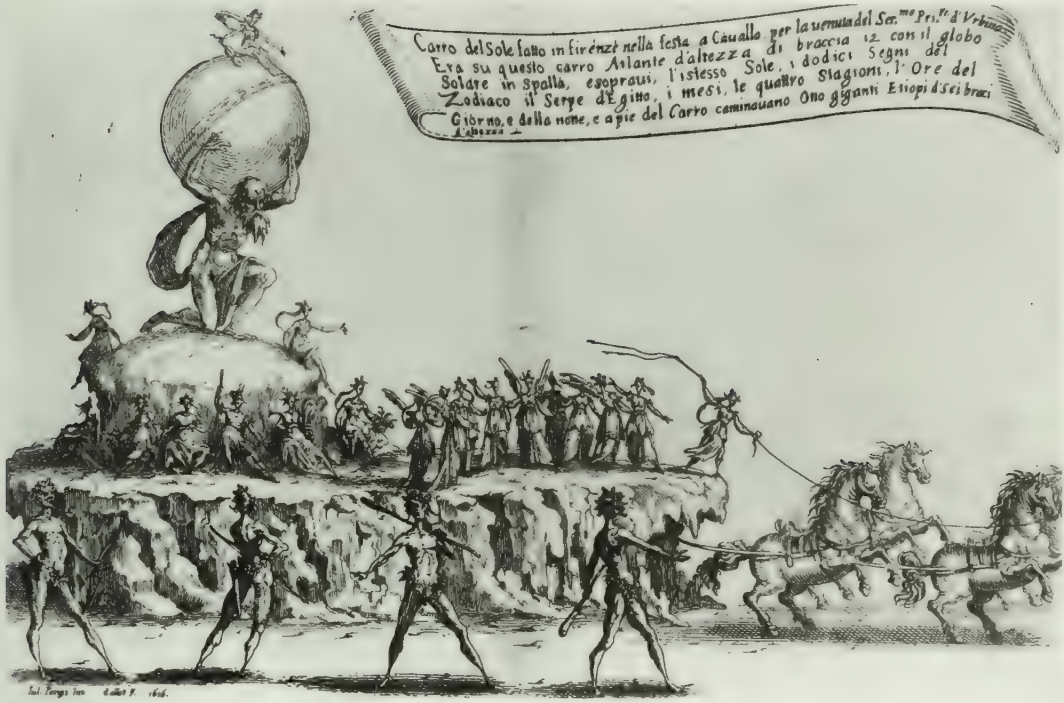 Carro del Sole fatto in firenze nella festa a Cauallo per la uenuta del Ser.mo Pri.pe d'Vrbino
Era su questo carro Atlante d'altezza di braccia 12 con il globo
Solare in Spalla, esopraui, l'istesso Sole, i dodici Segni del
Zodiaco il Serpe d'Egitto, i mesi, le quattro Stagioni, l'Ore del
Giorno, e della notte, e a pie del Carro caminauano Otto giganti Etiopi d'Sei bracci
d'altezza
Iul. Parigi Inu. Callot F. 1616.